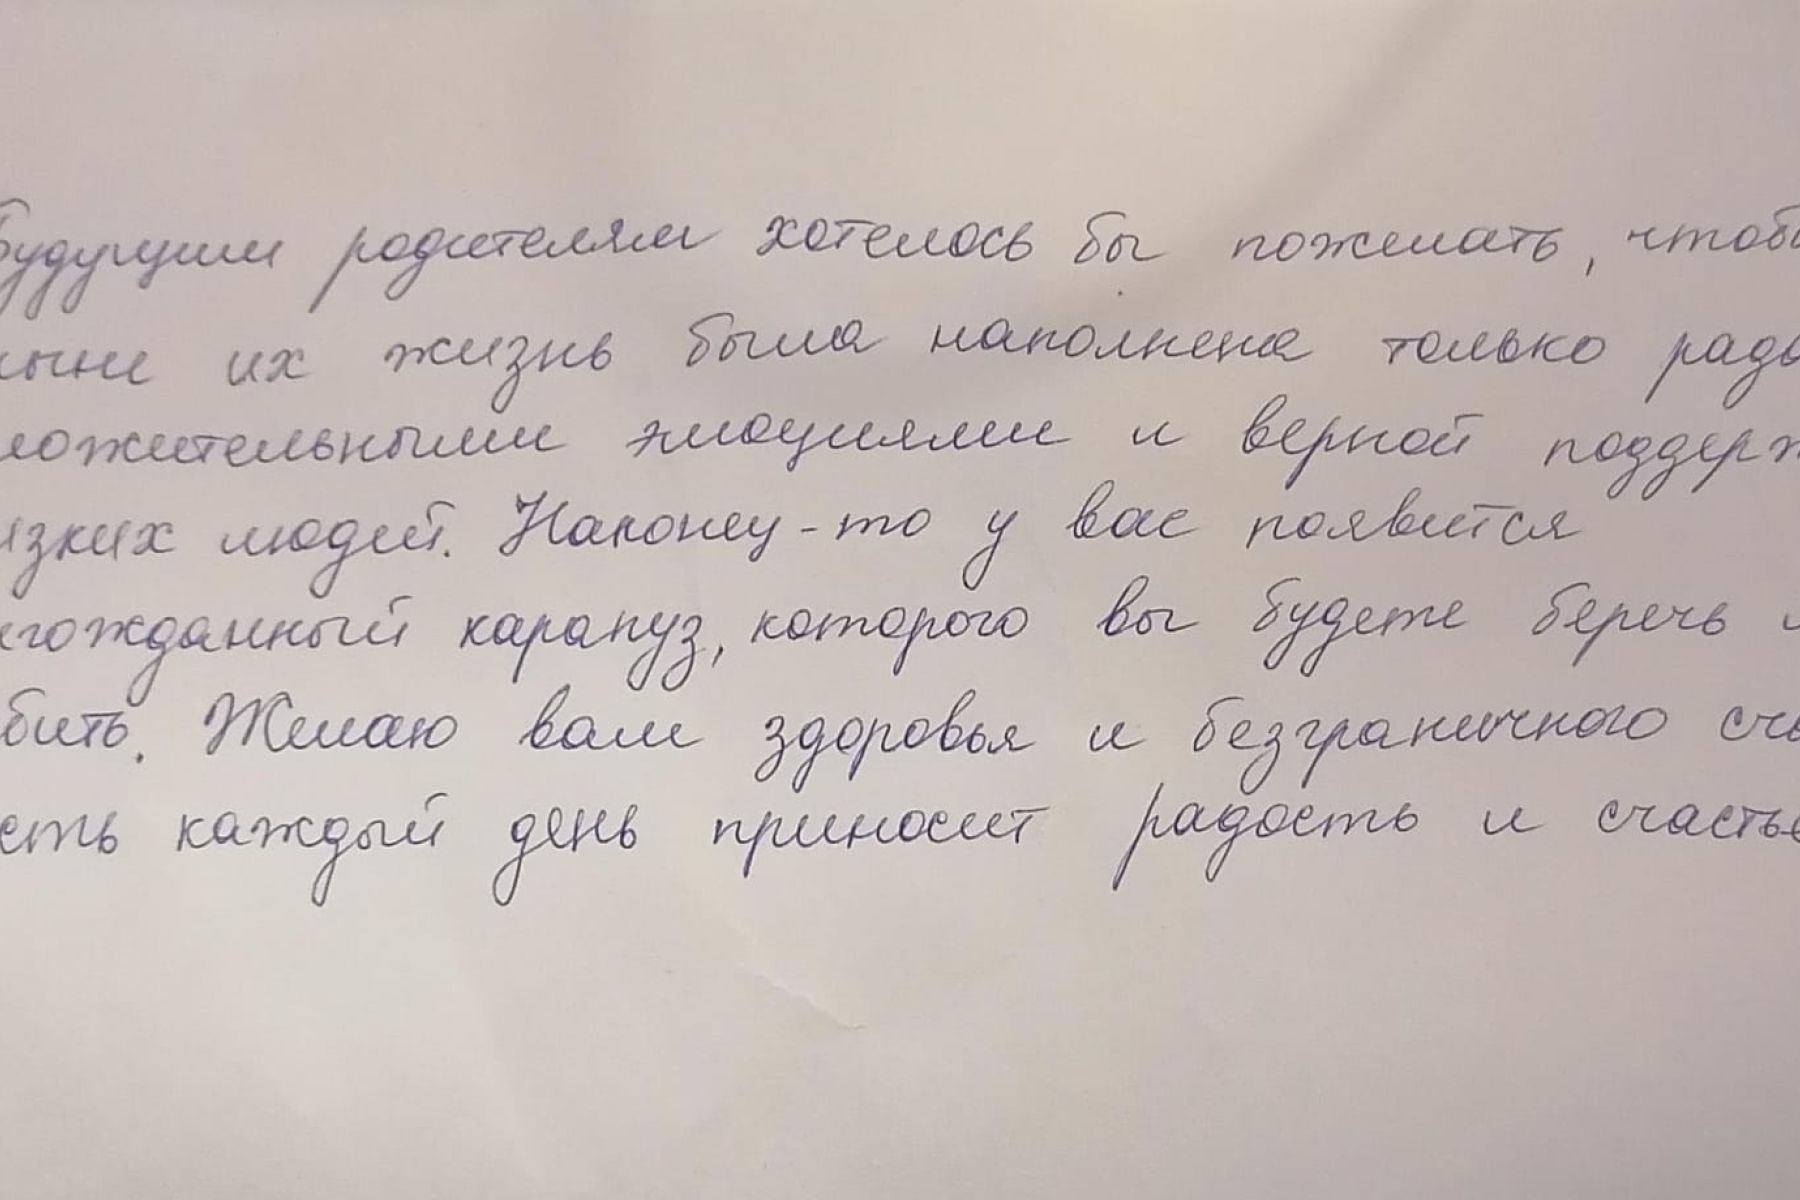 Будущим родителям хотелось бы пожелать, чтобы
ныне их жизнь была наполнена только радо
ложительными эмоциями и верной поддерж
изких людей. Наконец-то у вас появится
гожданный карапуз, которого вы будете беречь и
бить. Желаю вам здоровья и безграничного сча
сть каждый день приносит радость и счастье